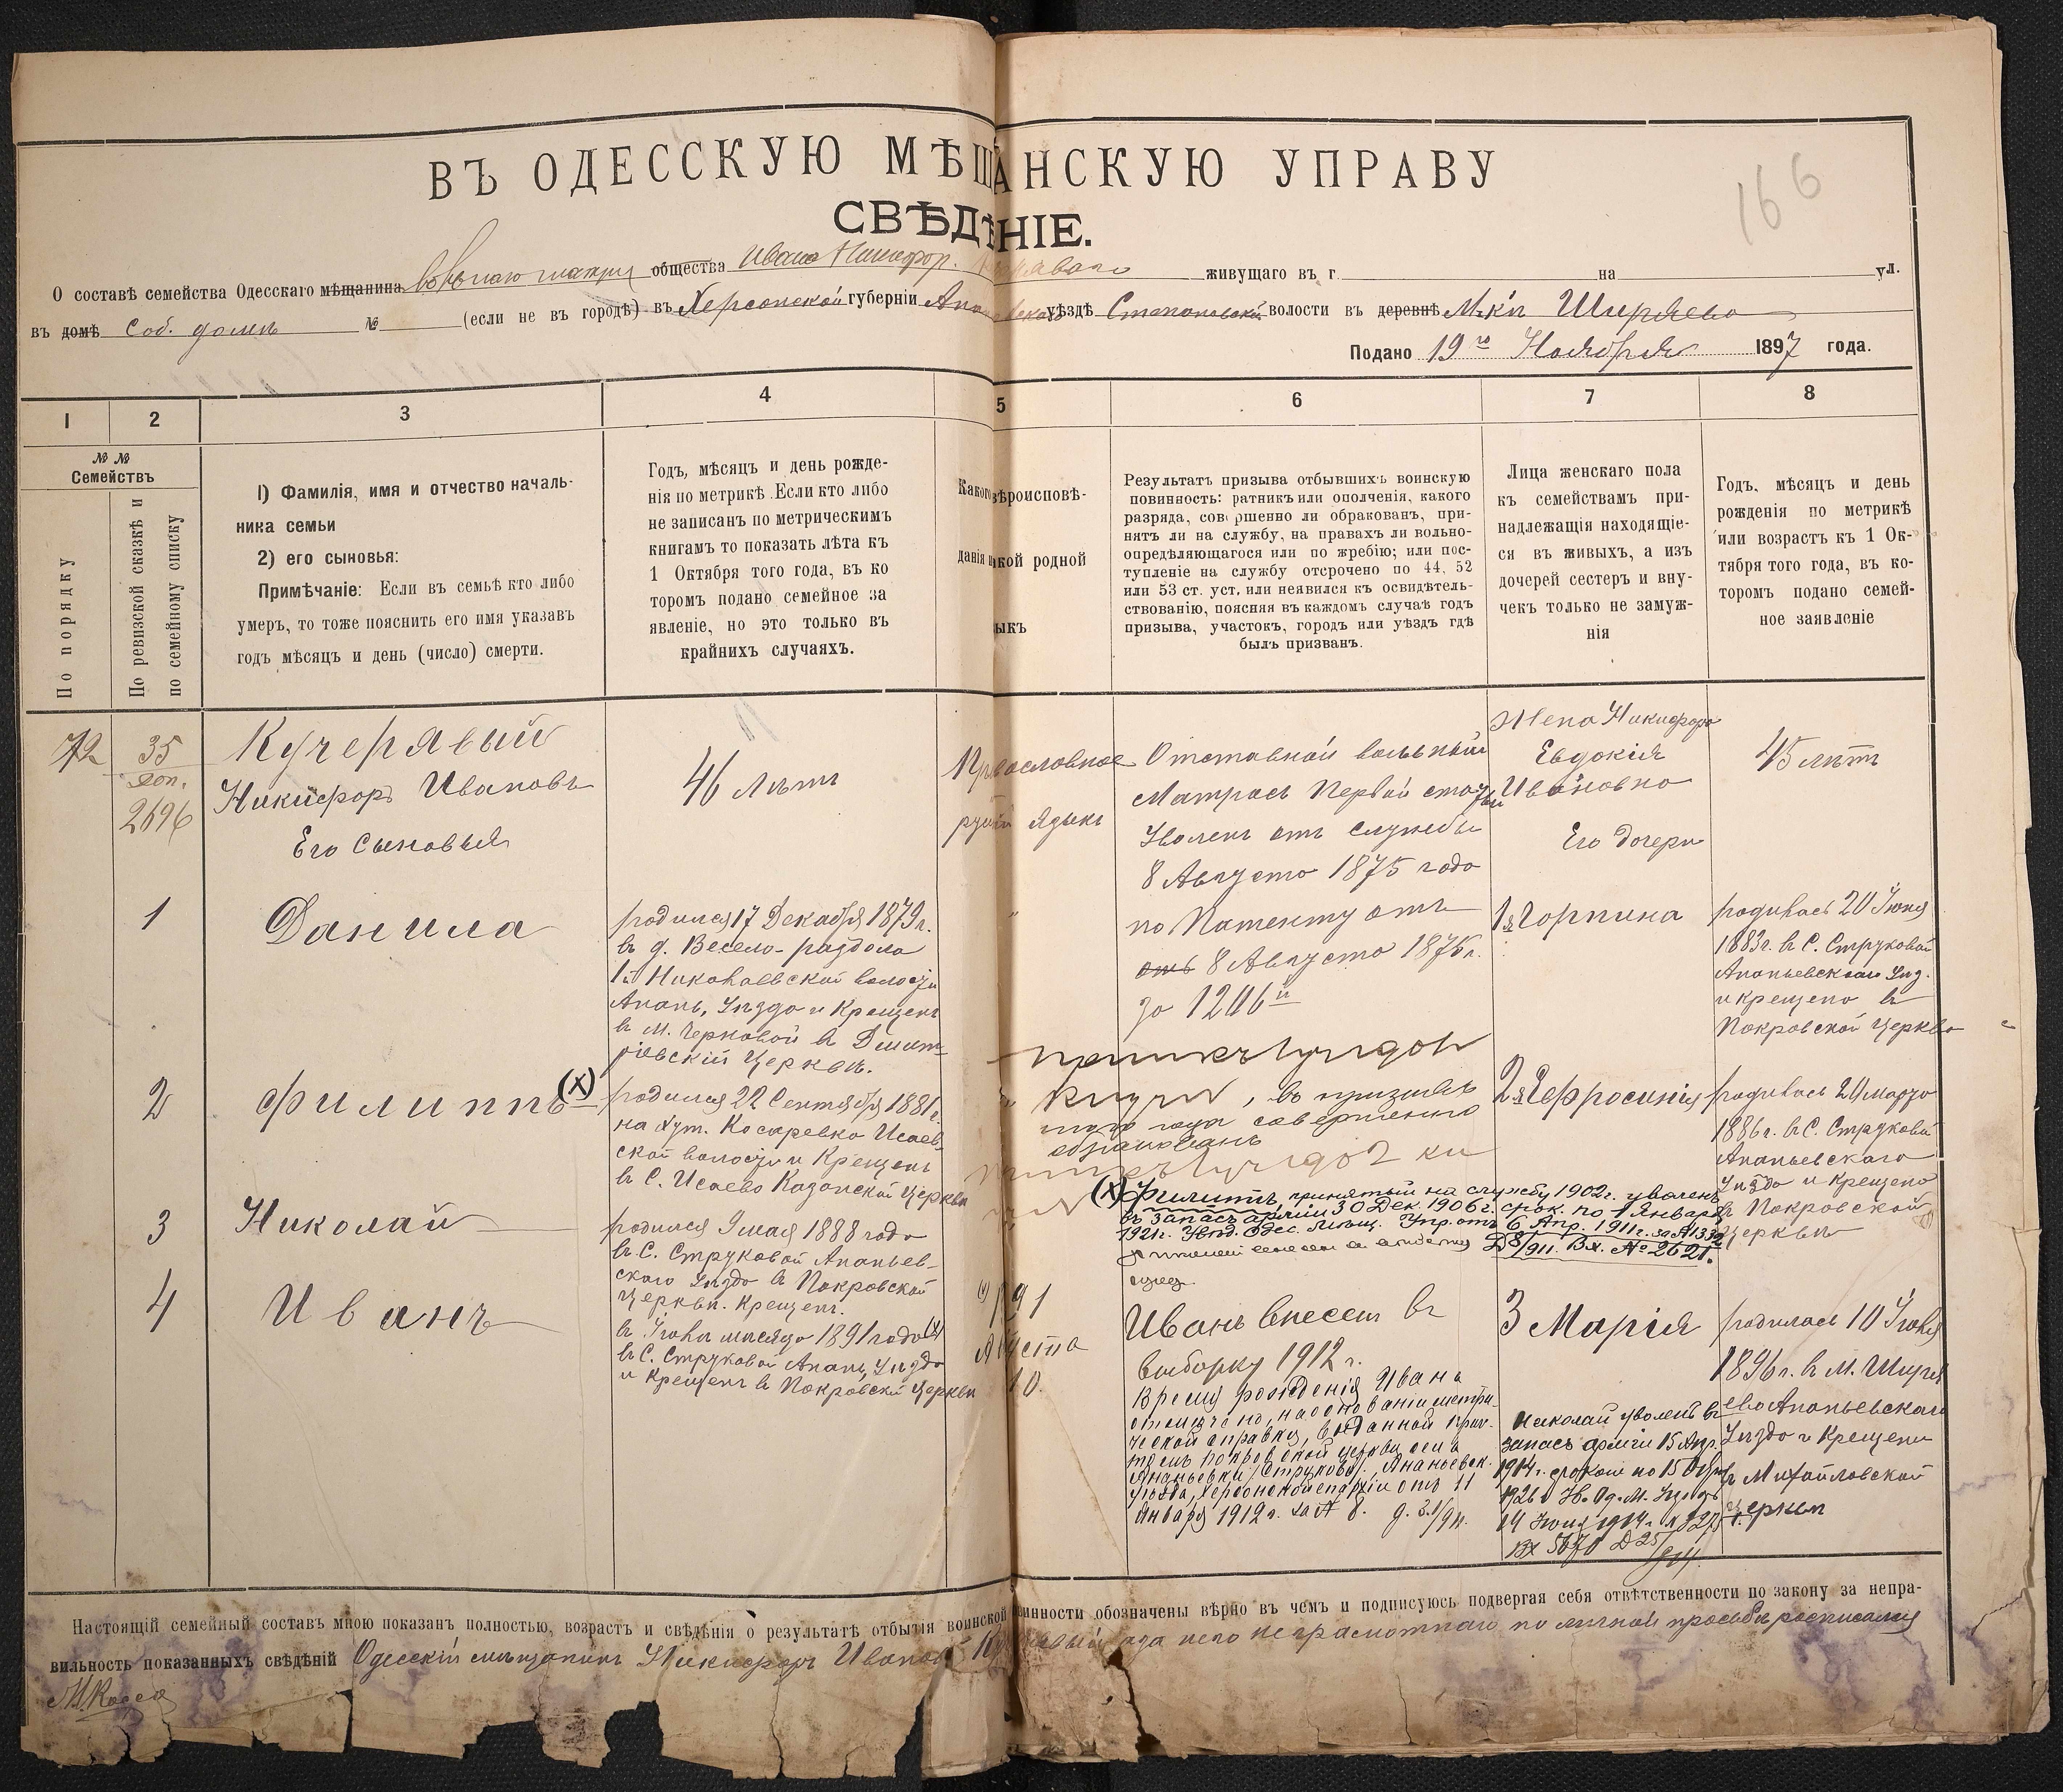 166
ВЪ ОДЕССКУЮ МѢЩАНСКУЮ УПРАВУ
СВѢДѢНІЕ.
О составѣ семейства Одесскаго мѣщанина общества Ивана Никифор. живущаго въ г. на ул.
въ домѣ Соб. домѣ № (если не въ городѣ) въ Херсонской губерніи уѣздѣ Степановской волости въ деревнѣ М-кѣ Ширяево
Подано 19го Ноября 1897 года.
1 2 3 4 5 6 7 8
№ №
Семействъ
По порядку
По ревизской сказкѣ и
по семейному списку
1) Фамилія, имя и отчество началь-
ника семьи
2) его сыновья:
Примѣчаніе: Если въ семьѣ кто либо
умеръ, то тоже пояснить его имя указавъ
годъ мѣсяцъ и день (число) смерти.
Годъ, мѣсяцъ и день рожде-
нія по метрикѣ. Если кто либо
не записанъ по метрическимъ
книгамъ то показать лѣта къ
1 Октября того года, въ ко
торомъ подано семейное за
явленіе, но это только въ
крайнихъ случаяхъ.
Какого вѣроисповѣ-
данія и какой родной
языкъ
Результатъ призыва отбывшихъ воинскую
повинность: ратникъ или ополченія, какого
разряда, совершенно ли обракованъ, при-
нятъ ли на службу, на правахъ ли вольно-
опредѣляющагося или по жребію; или пос-
тупленіе на службу отсрочено по 44, 52
или 53 ст. уст. или неявился къ освидѣтель-
ствованію, поясняя въ каждомъ случаѣ годъ
призыва, участокъ, городъ или уѣздъ гдѣ
былъ призванъ.
Лица женскаго пола
къ семействамъ при-
надлежащія находящіе-
ся въ живыхъ, а изъ
дочерей сестеръ и вну-
чекъ только не замуж-
нія
Годъ, мѣсяцъ и день
рожденія по метрикѣ
или возрастъ къ 1 Ок-
тября того года, въ ко-
торомъ подано семей-
ное заявленіе
72
35
доп.
2696
Кучерявый
Никифоръ Ивановъ
Его Сыновья
46 Лѣтъ
Православное
русскій языкъ
Отставной
Матросъ Первой статьи
Уволенъ отъ Службы
8 Августа 1875 года
по Патенту отъ
отъ 8 Августа 1875 г.
за
Жена Никифора
Евдокія
Ивановна
Его дочери
45 лѣтъ
1
Данила
родился 17 Декабря 1879 г.
въ д. Весело-раздола
1й Николаевской волости
Анань, Уѣзда и Крещенъ
въ М. Черновой въ Дмит-
ріевской Церквѣ.
1я Горпина
родилась 20 Іюня
1883 г. въ С. Струковой
Ананьевскаго Уѣз.
и крещена въ
Покровской Церкви
2
Филиппъ (х)
родился 22 Сентября 1881 г.
на хут. Косаревка Исаев-
ской волости и Крещенъ
въ С. Исаево Казанской Церкви
въ призывъ
того года совершенно
обракованъ
(х) Филиппъ, принятый на службу 1902 г. уволенъ
въ запасъ арміи 30 Дек. 1906 г. срок. по 1 Января
1921 г. Увѣд. Одес. Мѣщ. Упр. отъ 6 Апр. 1911 г. за № 1332
Д 8/911. Вх. № 2621.
2я Ефросинія
родилась 20 Марта
1886 г. въ С. Струковой
Ананьевскаго
Уѣзда и Крещена
въ Покровской
Церквѣ
3
Николай
родился 9 мая 1888 года
въ С. Струковой Ананьев-
скаго Уѣзда въ Покровской
Церквѣ. Крещенъ.
4
Иванъ
въ Іюнѣ мѣсяцѣ 1891 года (х)
въ С. Струковой Анань, Уѣзда
и Крещенъ въ Покровской Церкви
(х) 1891
Августа
10.
Иванъ внесенъ въ
выборку 1912 г.
Время рожденія Ивана
отмѣчено, на основаніи метри-
ческой справки, выданной прич-
томъ Покровской церкви села
Ананьевки /Струково/, Ананьевск.
уѣзда, Херсонской епархіи отъ 11
Января 1912 г. за № 8.
3 Марія
родилась 10 Іюня
1896 г. въ М. Ширя
ево Ананьевскаго
Уѣзда и Крещена
въ Михайловской
Церкви
Николай уволенъ въ
запасъ арміи 15 Апр.
1914 г. срокомъ по 15
1926 г.
14 Іюня 1914 г.
Вх 5670 Д 25/914
Настоящій семейный составъ мною показанъ полностью, возрастъ и свѣдѣнія о результатѣ отбытія воинской повинности обозначены вѣрно въ чемъ и подписуюсь подвергая себя отвѣтственности по закону за непра-
вильность показанныхъ свѣдѣній Одесскій мѣщанинъ Никифоръ Ивановъ а за него неграмотнаго по личной просьбѣ росписался